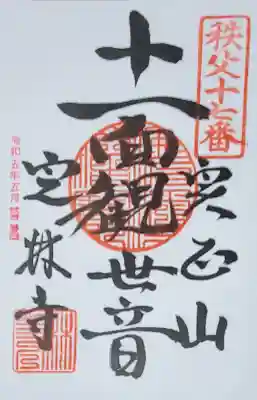 秩父十七番
実正山
十一面観世音
定林寺
令和五年五月